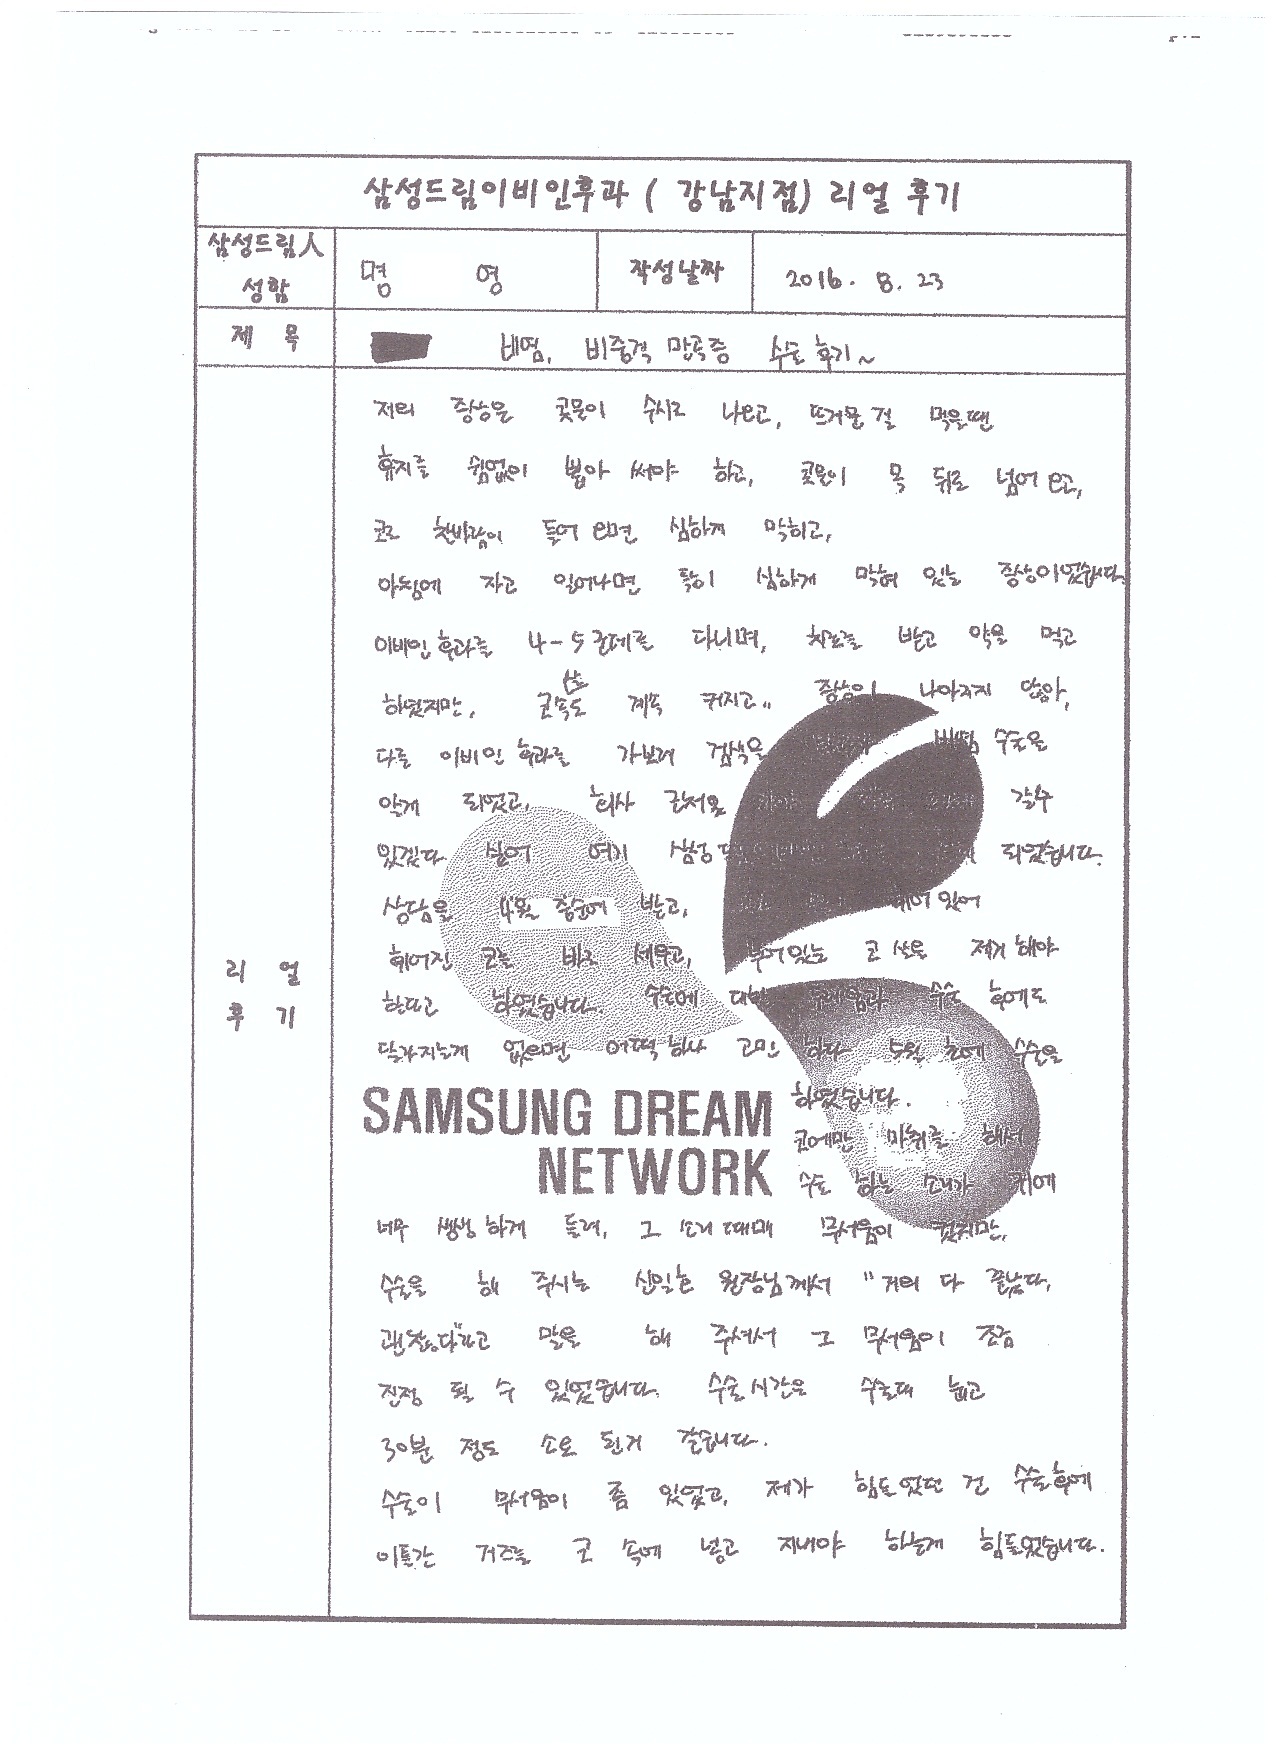 삼성드림이비인후과 ( 강남지점) 리얼 후기
삼성드림人
성함
명 영
작성날짜
2016. 8. 23
제 목
비염, 비중격 만곡증 수술 후기~
리 얼
후 기
저의 증상은 콧물이 수시로 나오고, 뜨거운걸 먹을땐
휴지를 쉼없이 뽑아 써야 하고, 콧물이 목 뒤로 넘어오고,
코로 찬바람이 들어오면 심하게 막히고,
아침에 자고 일어나면 특히 심하게 막혀 있는 증상이었습니다.
이비인후과를 4-5군데를 다니며, 치료를 받고 약을 먹고
하였지만, 코속도 살 계속 커지고.. 증상이 나아지지 않아,
다른 이비인후과를 가보려 검색을 비염 수술을
알게 되었고, 회사 갈수
있겠다 싶어 여기 삼성 되었습니다.
상담을 4월 중순에 받고, 있어
휘어진 코를 바로 세우고, 부어있는 코 살을 제거해야
한다고 하였습니다. 수술에 대한 두려움과 수술 후에도
달라지는게 없으면 어떡하나 고민 하다 5월 초에 수술을
SAMSUNG DREAM
NETWORK
하였습니다.
코에만 마취를 해서
수술 하는 소리가 귀에
너무 생생하게 들려, 그 소리 때매 무서움이 컸지만,
수술을 해 주시는 신일호 원장님께서 "거의 다 끝났다,
괜찮다"라고 말을 해 주셔서 그 무서움이 조금
진정 될 수 있었습니다. 수술시간은 수술대 눕고
30분 정도 소요 된거 같습니다.
수술이 무서움이 좀 있었고, 제가 힘들었던 건 수술후에
이틀간 거즈를 코 속에 넣고 지내야 하는게 힘들었습니다.